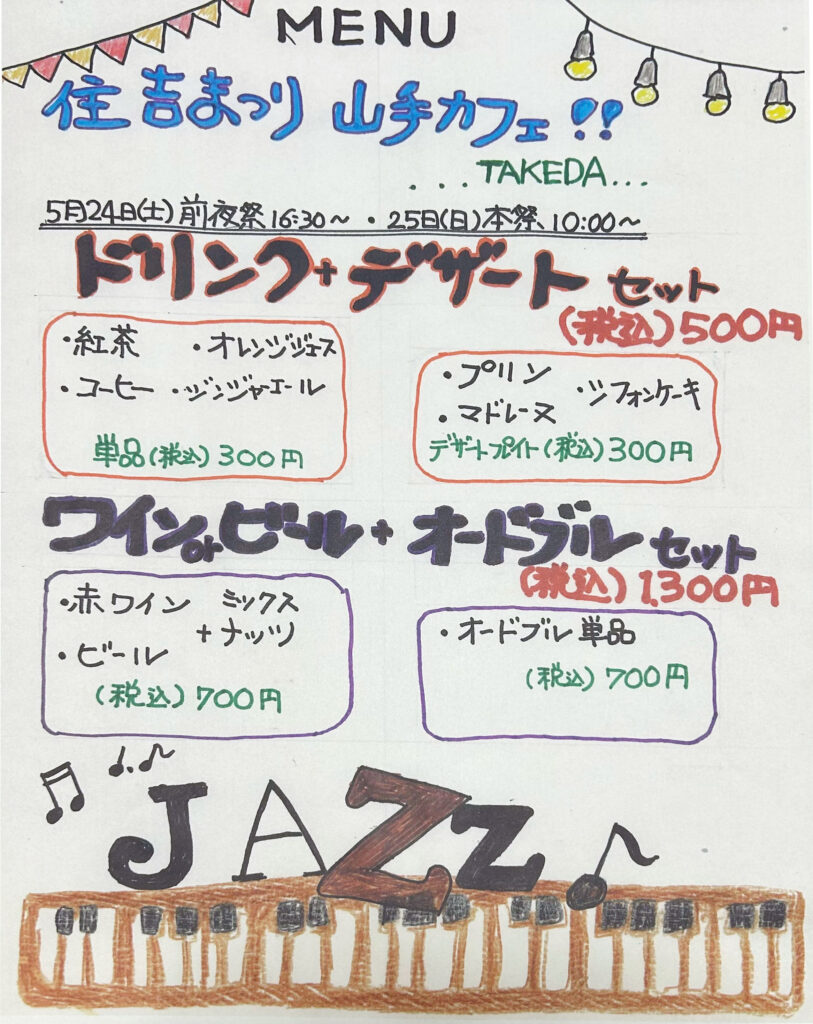 MENU
住吉まつり 山手カフェ!!
...TAKEDA...
5月24日(土)前夜祭16:30〜・25日(日)本祭、10:00〜
ドリンク+デザート セット
(税込)500円
・紅茶 ・オレンジジュース
・コーヒー ・ジンジャーエール
単品(税込)300円
・プリン ・シフォンケーキ
・マドレーヌ
デザートプレイト(税込)300円
ワインorビール+オードブル セット
(税込)1,300円
・赤ワイン ミックス
+ナッツ
・ビール
(税込)700円
・オードブル単品
(税込)700円
JAZZ